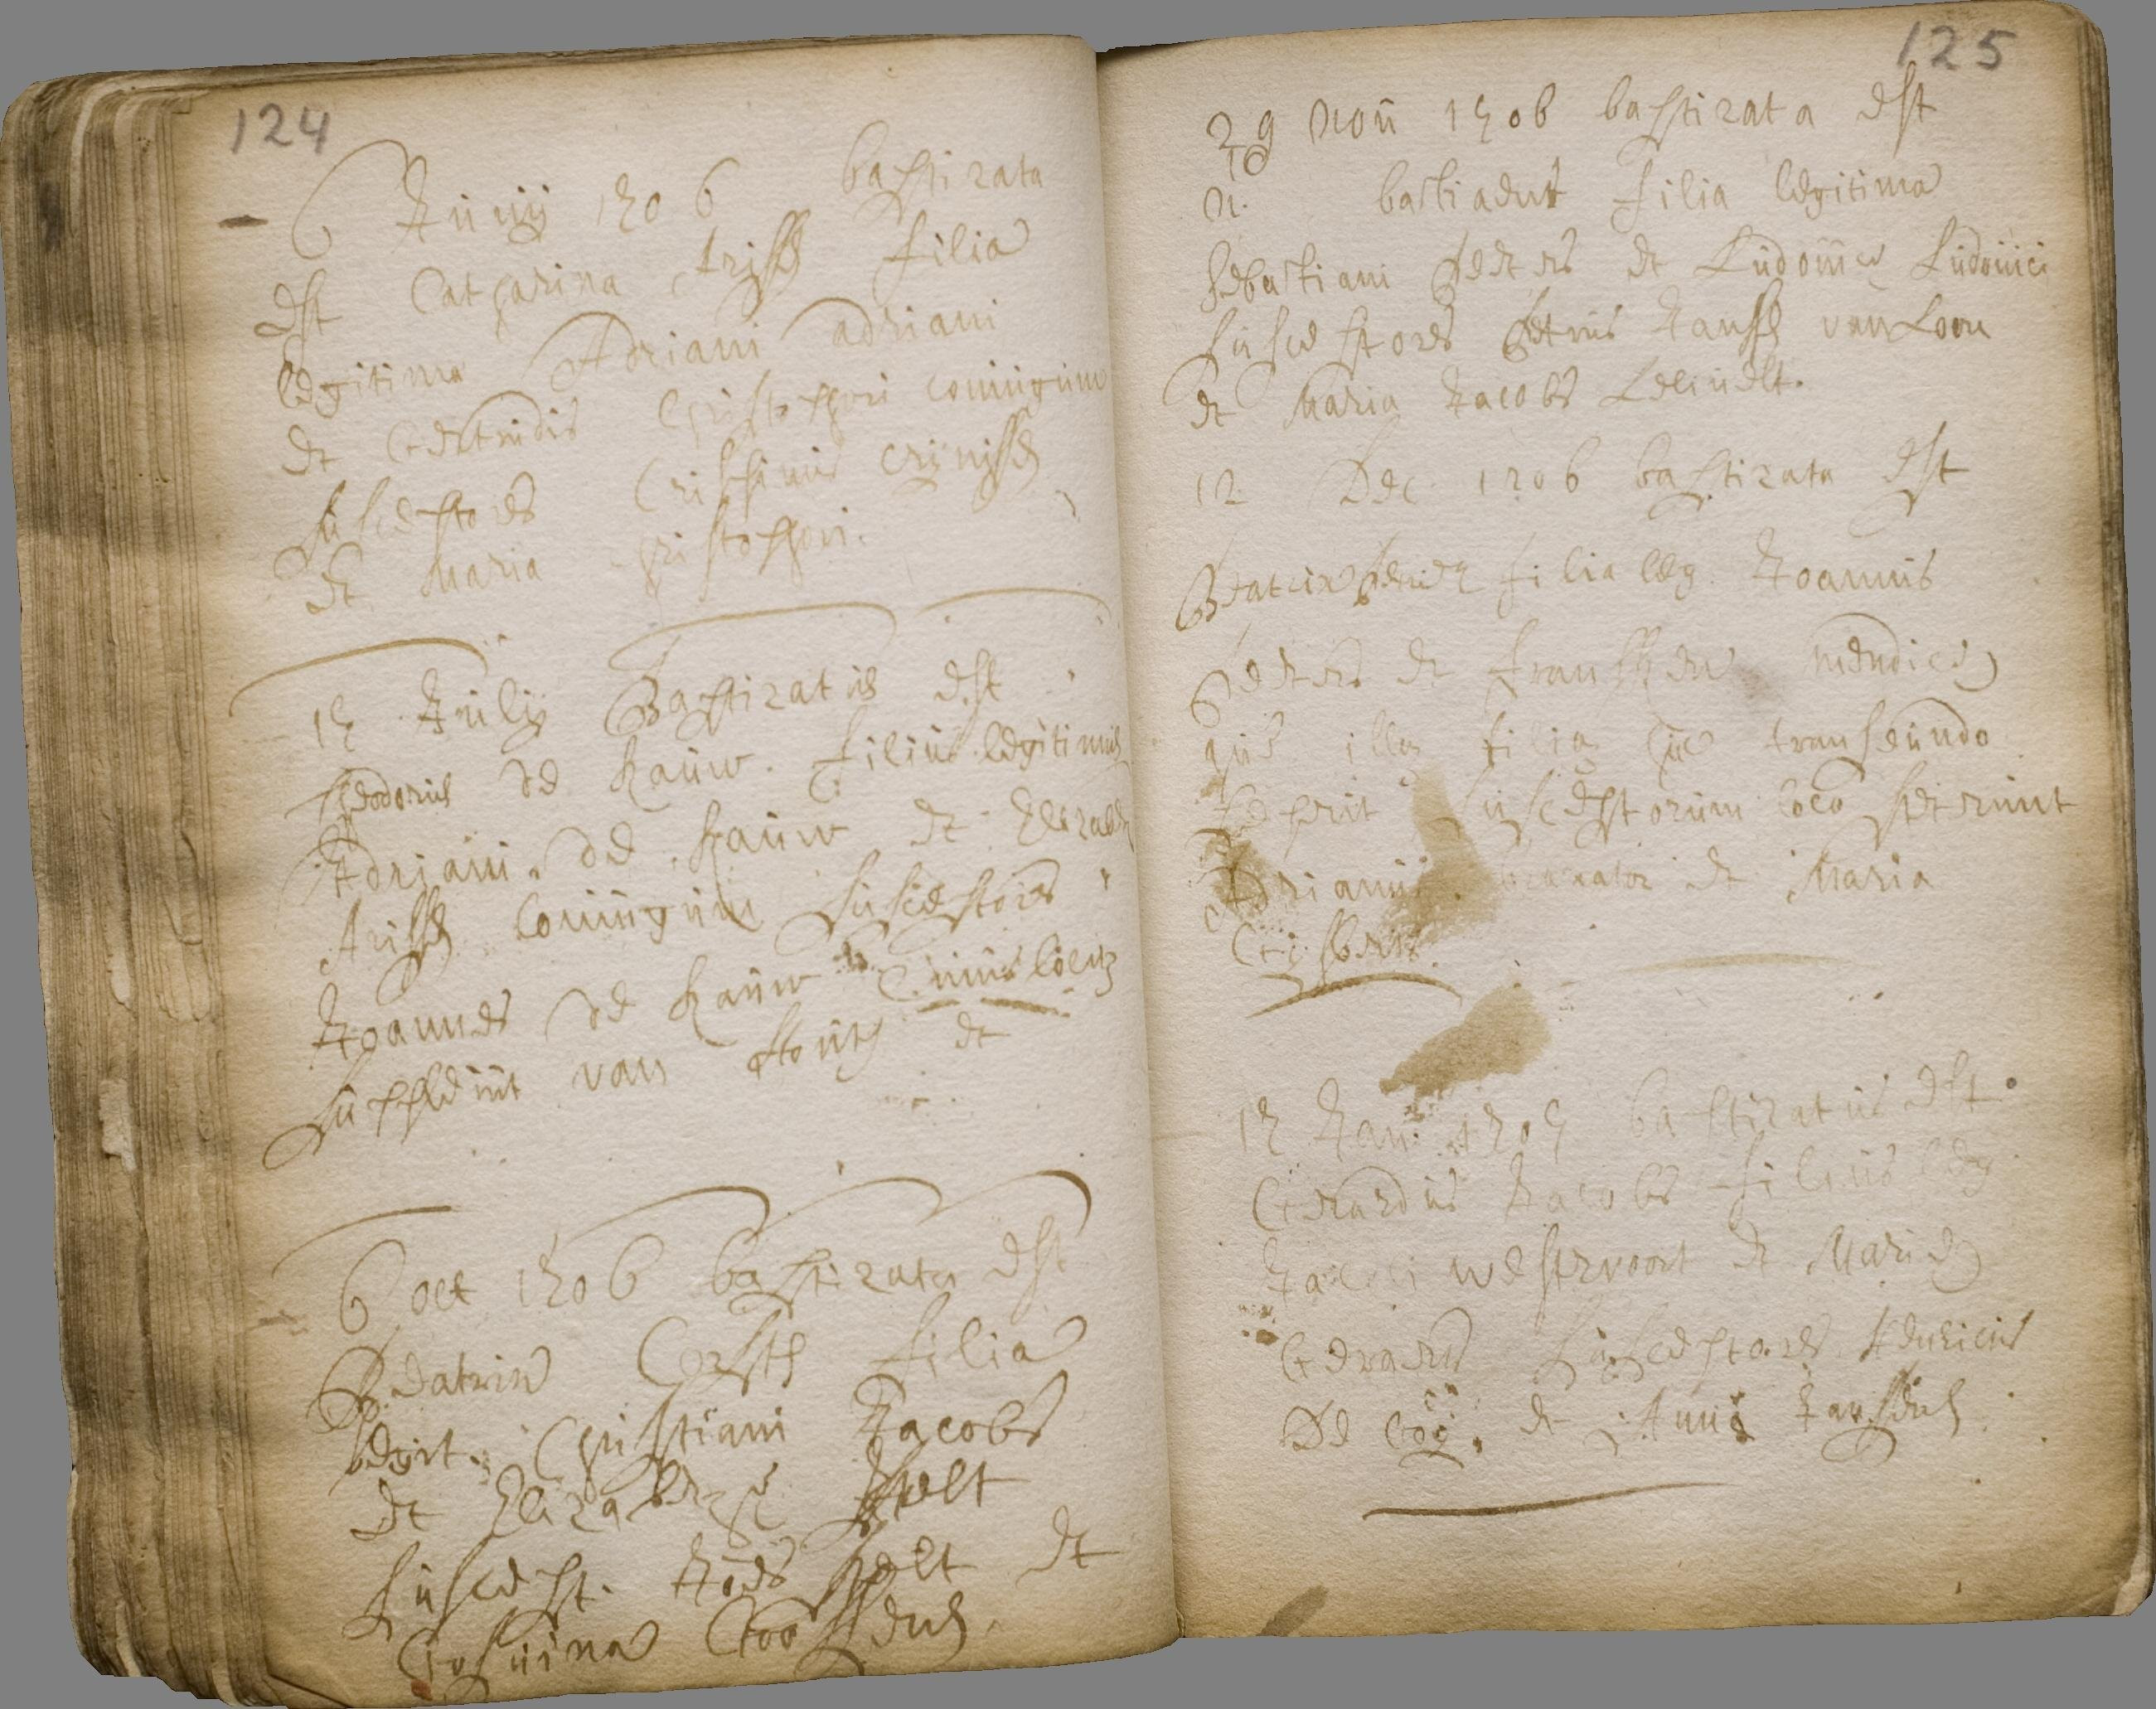 124
6 Junij 1706 baptizata
est Catharina Arisse filia
legitima Adriani adriani
et Gertrudis Christophori coniugum
susceptores Crispinus Crijnisse
et Maria Christophori.
17 Julij Baptizatus est
Theodorus de Kauw. filius legitimus
Adriani de Kauw et Elizabeth
Arisse coniugum susceptores
Joannes de Kauw
supplevit van et
6 oct 1706 baptizata est
Beatrix Corsten filia
legit. Christiani Jacobs
et Elizabeth Pelt
suscept. Joës Pelt et
Gosuina Goossens
125
29 Nou 1706 baptizata est
N. bastiadut filia legitima
Sebastiani Peters et Ludouica Ludouici
susceptores Petrus Jansse van Loon
et Maria Jacobs
12 Dec 1706 baptizata est
Beatrix filia leg. Joannis
Peeters et Fransken mendice
qui illa filia hic transeundo
peperit susceptorum loco steterunt
Adrianus et Maria
Gijsberts.
17 Jan 1707 baptizatus est
Gerardus Jacobs filius leg
Jacobi westrvoort et Marie
Gerardts susceptores Henricus
De et Anna Janssens